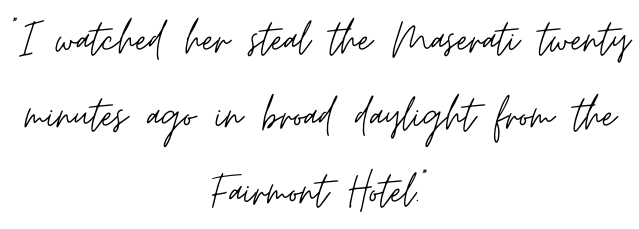 "I watched her steal the Maserati twenty
minutes ago in broad daylight from the
Fairmont Hotel."